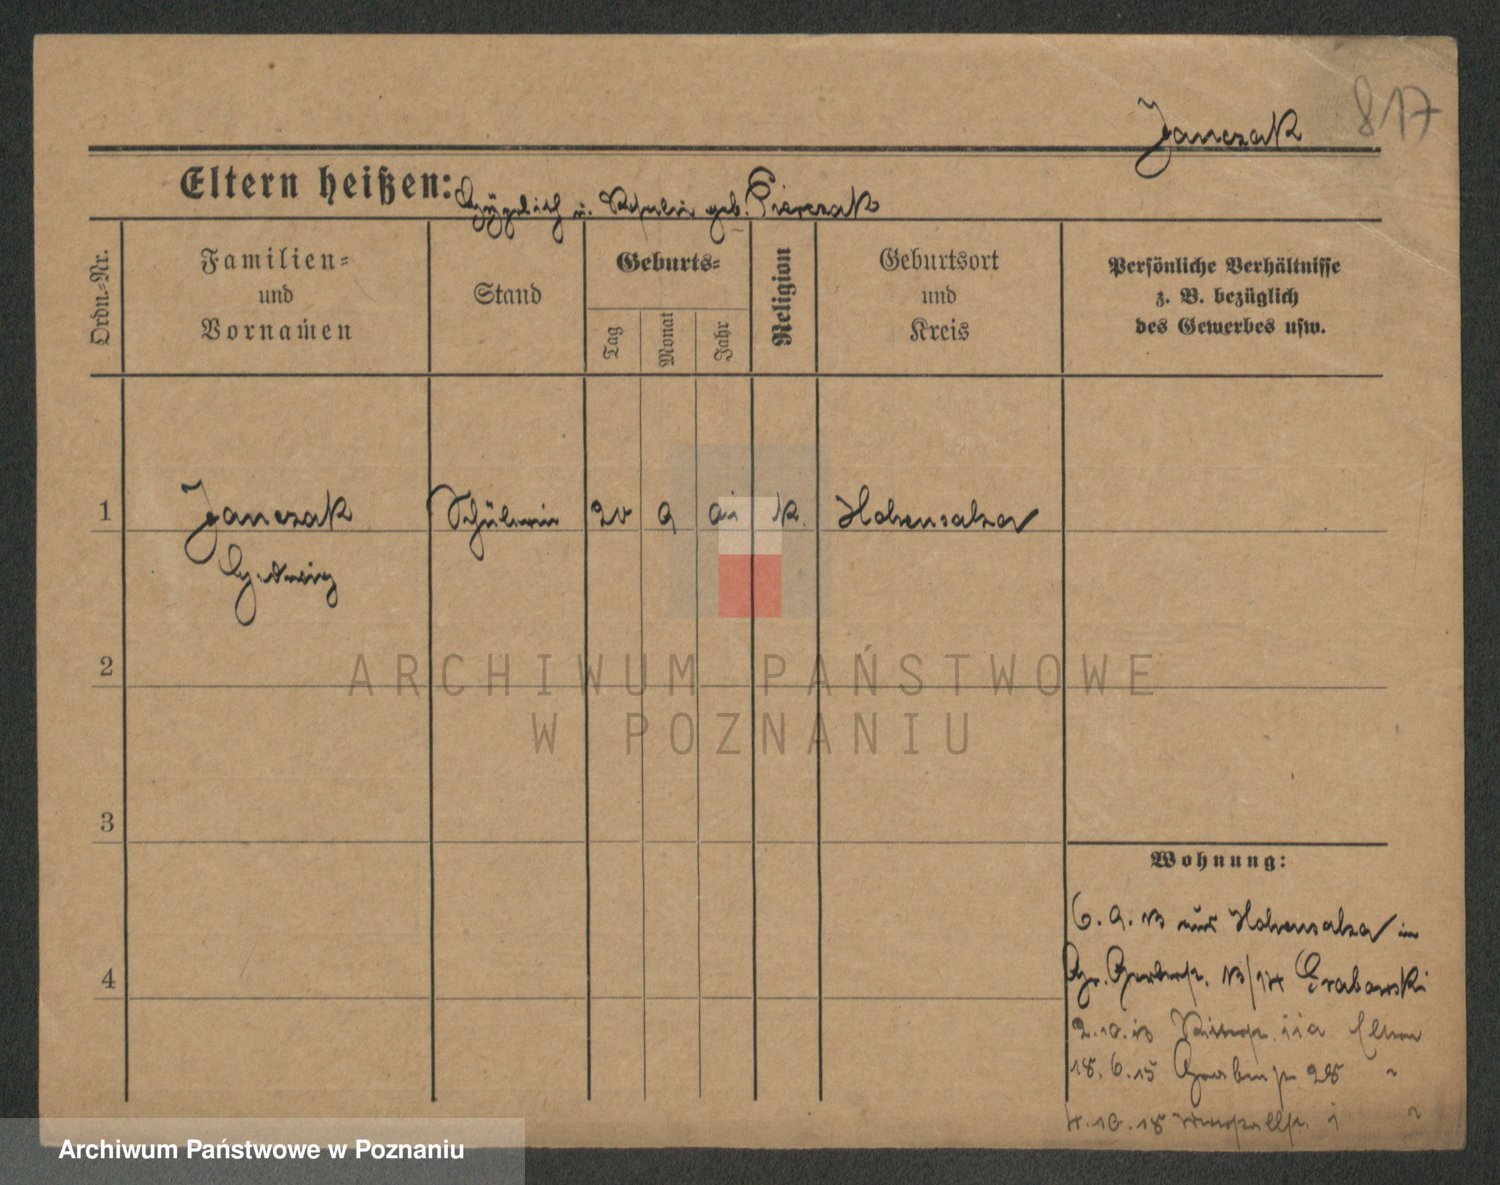 817
Janczak
Eltern heißen: u. geb. Pierczak
Ordn.-Nr.
Familien- und Vornamen
Stand
Geburts-
Tag
Monat
Jahr
Religion
Geburtsort und Kreis
Persönliche Verhältnisse z. B. bezüglich des Gewerbes usw.
1 Janczak Schülerin 9 k. Hohensalza
Hedwig
2
3
4
Wohnung:
6. 9. 13 aus Hohensalza in
Gr. Gerberstr. 13/14 Grabowski
2. 10. 13 Ritterstr. 11a Eltern
18. 6. 15 Gerberstr. 28 "
4. 10. 18 1 "
ARCHIWUM PAŃSTWOWE
W POZNANIU
Archiwum Państwowe w Poznaniu